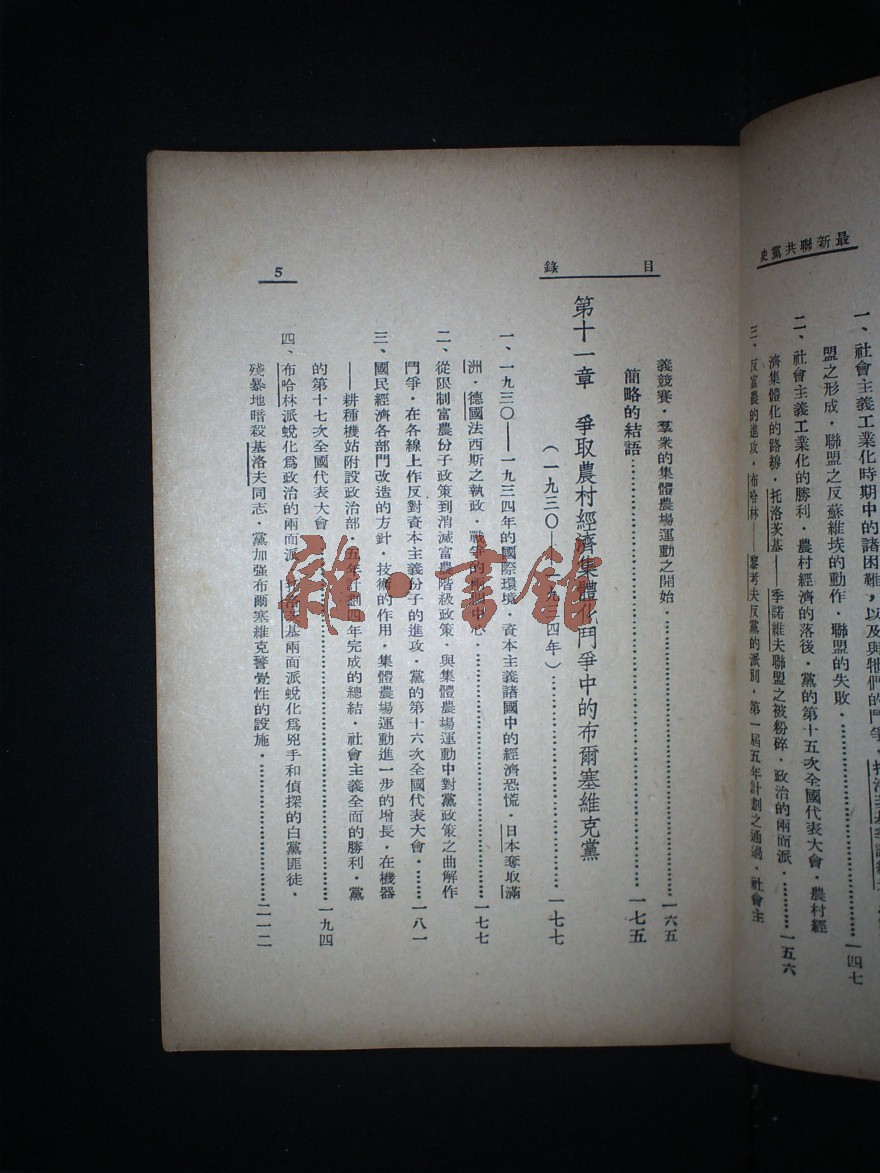 最新聯共黨史
一、社會主義工業化時期中的諸困難，以及與牠們的鬥爭・托洛茨基季諾維夫
盟之形成・聯盟之反蘇維埃的動作・聯盟的失敗・…………一四七
二、社會主義工業化的勝利・農村經濟的落後・黨的第十五次全國代表大會・農村經
濟集體化的路線・托洛茨基——季諾維夫聯盟之被粉碎・政治的兩面派・…………一五六
三、反富農的進攻・布哈林——黎考夫反黨的派別・第一屆五年計劃之通過・社會主
目錄
義競賽・羣衆的集體農場運動之開始・…………一六五
簡略的結語…………一七五
第十一章　爭取農村經濟集體化鬥爭中的布爾塞維克黨
（一九三〇——一九三四年）…………一七七
一、一九三〇——一九三四年的國際環境・資本主義諸國中的經濟恐慌・日本奪取滿
洲・德國法西斯之執政・戰爭的兩個中心・…………一七七
二、從限制富農份子政策到消滅富農階級政策・與集體農場運動中對黨政策之曲解作
鬥爭・在各線上作反對資本主義份子的進攻・黨的第十六次全國代表大會・…………一八一
三、國民經濟各部門改造的方針・技術的作用・集體農場運動進一步的增長・在機器
——耕種機站附設政治部・五年計劃四年完成的總結・社會主義全面的勝利・黨
的第十七次全國代表大會・…………一九四
四、布哈林派蛻化爲政治的兩面派・托洛茨基兩面派蛻化爲兇手和偵探的白黨匪徒・
殘暴地暗殺基洛夫同志・黨加強布爾塞維克警覺性的設施・…………二一二
5
雜・書館